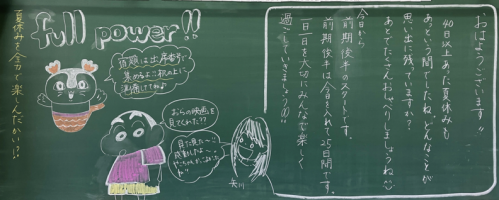 full power!!
おはようございます!!
40日以上あった夏休みも
あっという間でしたね。どんなことが
思い出に残っていますか?
あとでたくさんおしゃべりしましょうね
今日から
前期後半のスタートです。
前期後半は今日を入れて25日間です。
一日一日を大切にみんなで楽しく
過ごしていきましょう
宿題は出席番号で
集めるよ
おらの映画を
見てくれた??
見た見た〜
感動したよ〜
矢川
夏休みを全力で楽しんだかい!?